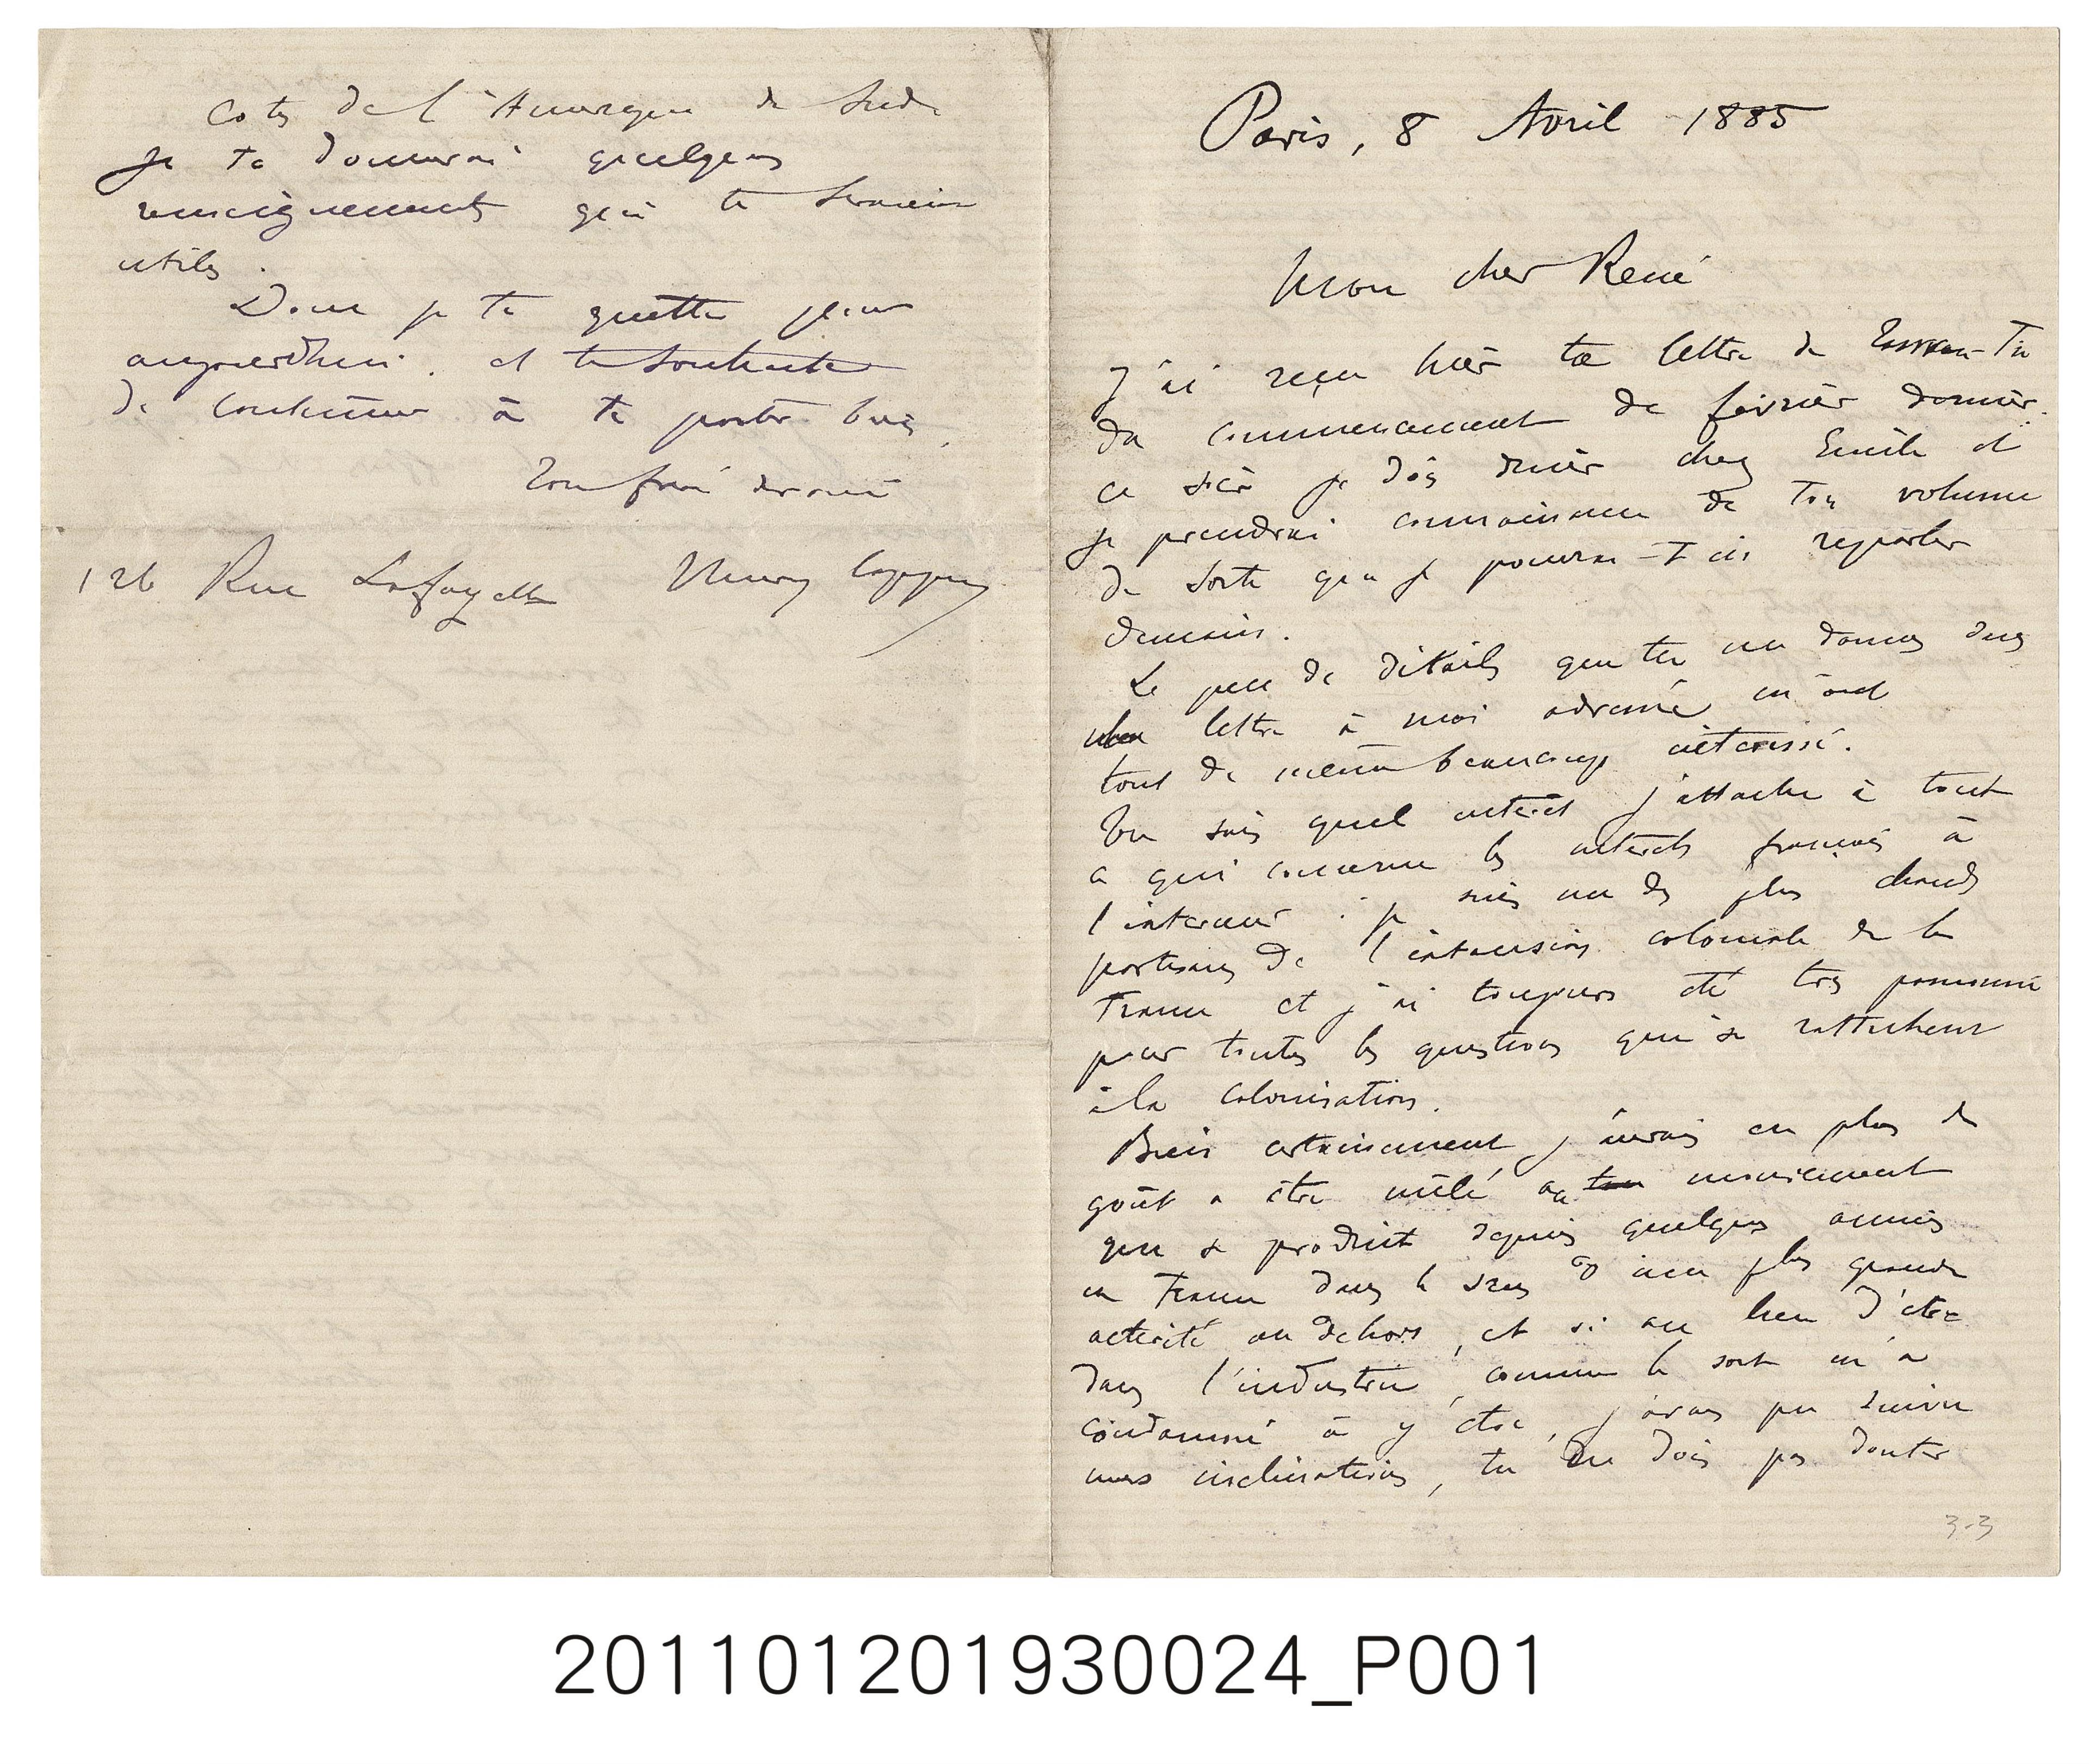 Paris, 8 Avril 1885
Mon cher René
J'ai reçu hier ta lettre de Tu
du commencement de février dernier.
Ce soir je dois diner chez Emile et
je prendrai connaissance de ton volume
de sorte que je pourrai t'en reparler
demain.
Le peu de détails que tu me donnes dans
lettre à moi adressée m'ont
tout de même beaucoup intéressé.
Tu sais quel intérêt j'attache à tout
ce qui concerne les intérêts français à
l'interieur : je suis un des plus chauds
partisans de l'extension coloniale de la
France et j'ai toujours été très passionné
pour toutes les questions qui se rattachent
à la colonisation.
Bien certainement j'aurais eu plus de
goût a être mêlé au mouvement
qui se produit depuis quelques années
en France dans le sens d'une plus grande
activité au dehors, et si au lieu d'être
dans l'industrie, comme le sort m'a
condamné à y être, j'avais pu suivre
mes inclinations, tu ne dois pas douter
3-3
Cotes de l'Amerique du Sud
Je te donnerai quelques
renseignements qui te seraient
utiles.
Donc je te quitte pour
aujourd'hui et te souhaite
de continuer à te porter bien.
Ton frère devoué
126 Rue Lafayette Henry
201101201930024_P001